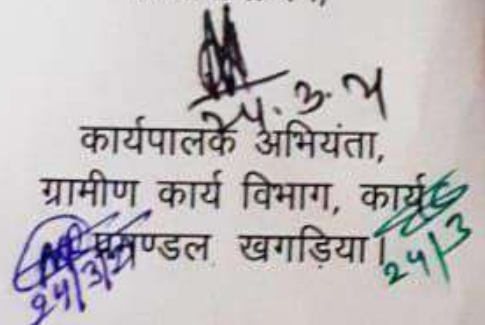 24.3.
कार्यपालक अभियंता,
ग्रामीण कार्य विभाग, कार्य
प्रमण्डल खगड़िया।
24/3
24/3/